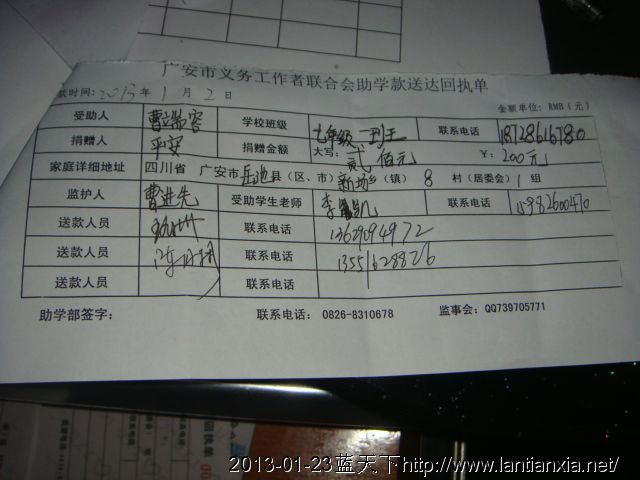 广安市义务工作者联合会助学款送达回执单
款时间: 2013年 1月 2日 金额单位: RMB（元）
受助人 曹瑞容 学校班级 七年级一班 联系电话 18728616780
捐赠人 平安 捐赠金额 大写: 贰佰元 ¥: 200元
家庭详细地址 四川省 广安市岳池县（区、市）新场乡（镇）8 村（居委会）1 组
监护人 曹进先 受助学生老师 李凯 联系电话 15982600470
送款人员 联系电话 13629094972
送款人员 联系电话 13551628826
送款人员 联系电话
助学部签字: 联系电话: 0826-8310678 监事会: QQ739705771
回执单
2013-01-23蓝天下http://www.lantianxia.net/